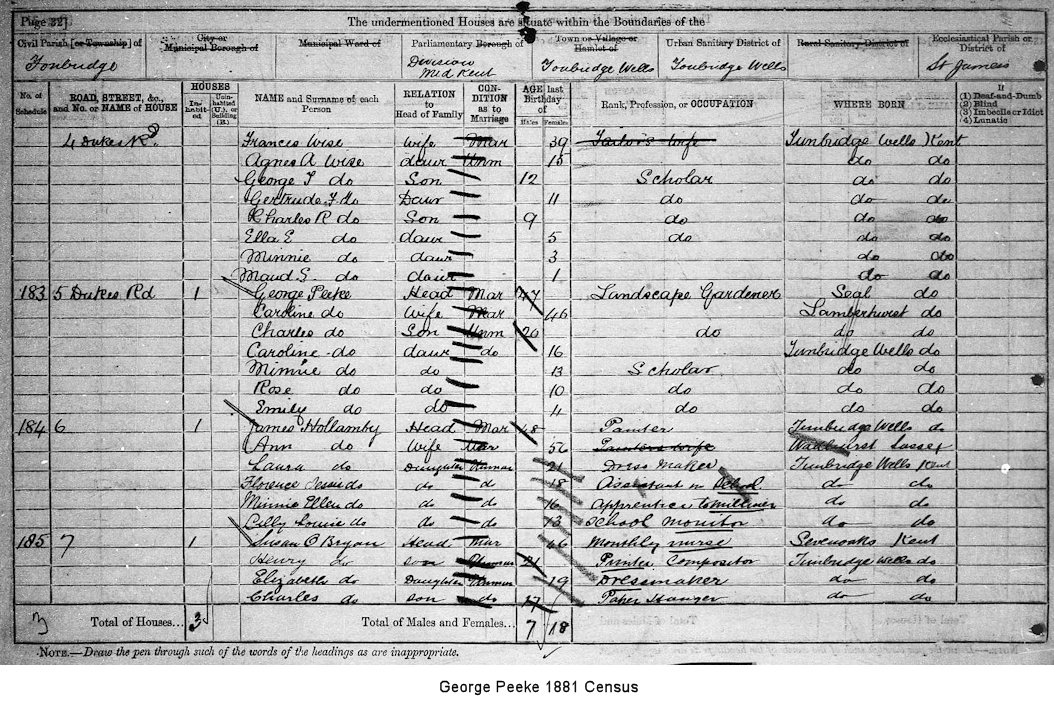 Page 32] The undermentioned Houses are situate within the Boundaries of the
Civil Parish [or Township] of City or Municipal Borough of Municipal Ward of Parliamentary Borough of Town or Village or Hamlet of Urban Sanitary District of Rural Sanitary District of Ecclesiastical Parish or District of
Tonbridge Division Mid Kent Tonbridge Wells Tonbridge Wells St James
No. of Schedule ROAD, STREET, &c., and No. or NAME of HOUSE HOUSES Inhabited Uninhabited (U.), or Building (B.) NAME and Surname of each Person RELATION to Head of Family CONDITION as to Marriage AGE last Birthday of Males Females Rank, Profession, or OCCUPATION WHERE BORN If (1) Deaf-and-Dumb (2) Blind (3) Imbecile or Idiot (4) Lunatic
4 Dukes Rd Frances Wise Wife Mar 39 Tailor's wife Tunbridge Wells Kent
Agnes A Wise daur Unm 15 do do
George T do Son 12 Scholar do do
Gertrude F do Daur 11 do do do
Charles R do Son 9 do do do
Ella E do daur 5 do do do
Minnie do daur 3 do do
Maud S do daur 1 do do
183 5 Dukes Rd 1 George Peeke Head Mar 47 Landscape Gardener Seal do
Caroline do Wife Mar 46 Lamberhurst do
Charles do Son Unm 20 do do do
Caroline do daur do 16 Tunbridge Wells do
Minnie do do 13 Scholar do do
Rose do do 10 do do do
Emily do do 4 do do do
184 6 1 James Hollamby Head Mar 48 Painter Tunbridge Wells do
Ann do Wife Mar 56 Painters wife Wadhurst Sussex
Laura do Daughter Unmar 21 Dress Maker Tunbridge Wells Kent
Florence Jessie do do do 18 Assistant in School do do
Minnie Ellen do do do 16 Apprentice to Milliner do do
Lilly Louise do do do 13 School Monitor do do
185 7 1 Susan O Bryan Head Mar 46 Monthly nurse Sevenoaks Kent
Henry do son Unmar 21 Printer Compositor Tunbridge Wells do
Elizabeth do Daughter Unmar 19 Dressmaker do do
Charles do son do 17 Paper Hanger do do
3 Total of Houses... 3 Total of Males and Females... 7 18
NOTE.—Draw the pen through such of the words of the headings as are inappropriate.
George Peeke 1881 Census